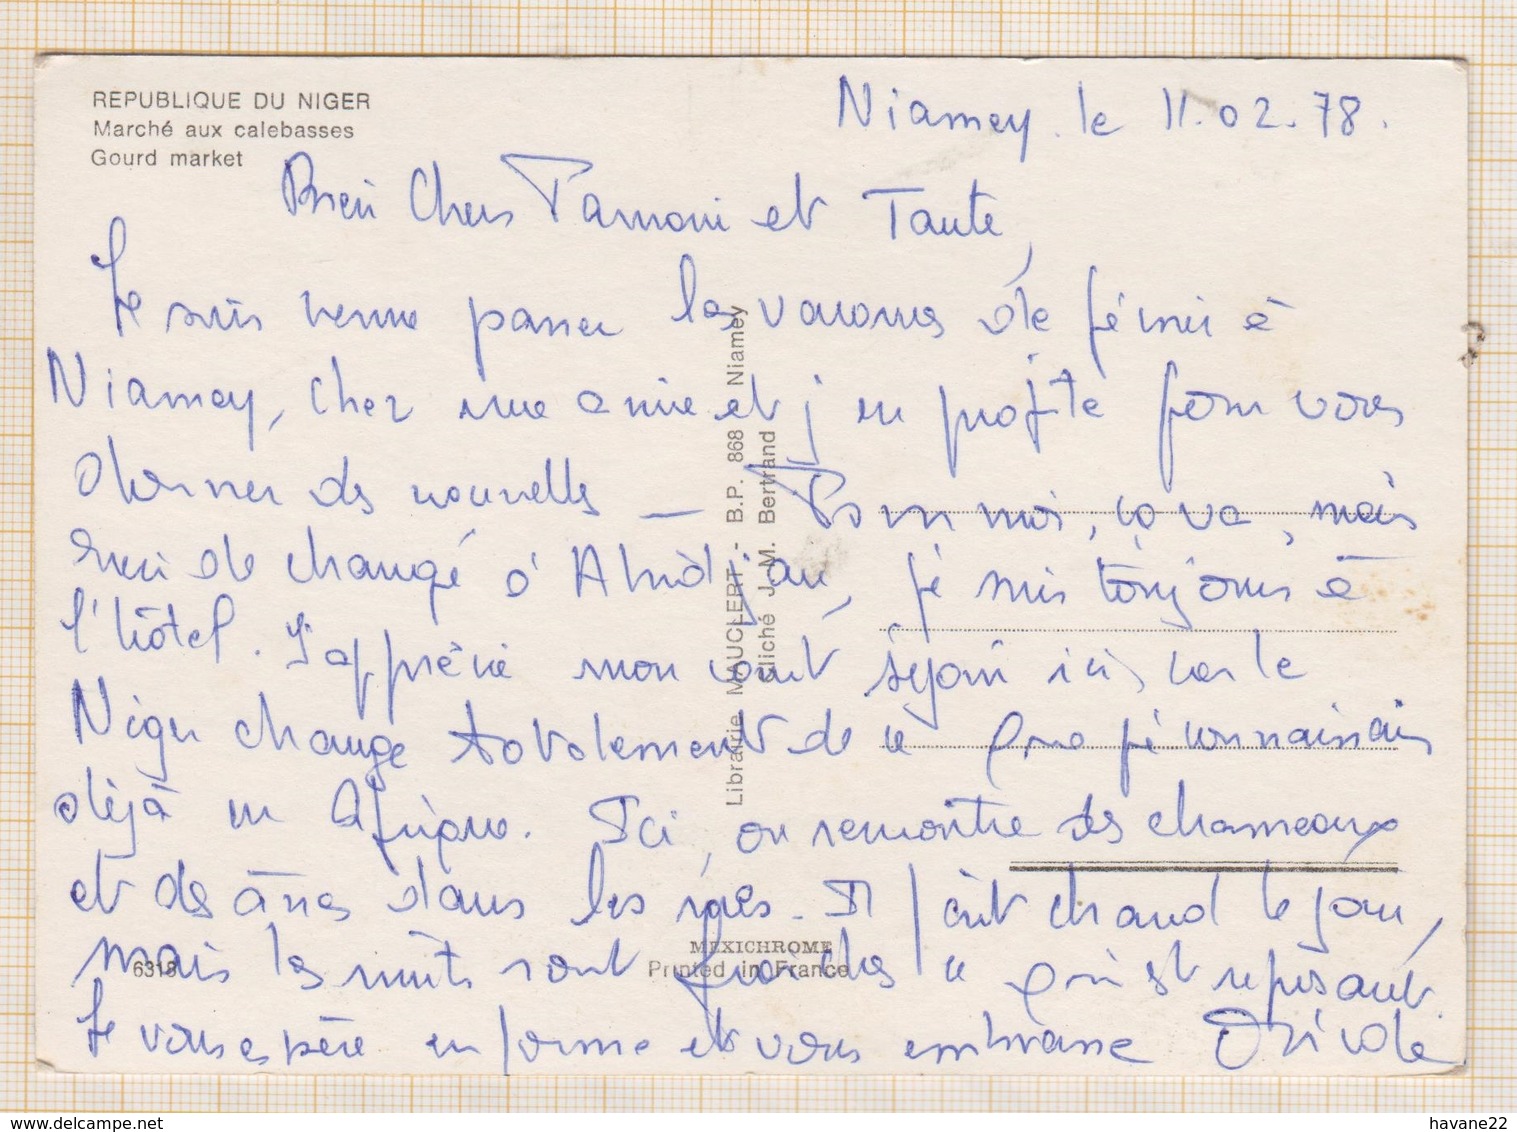 REPUBLIQUE DU NIGER
Marché aux calebasses
Gourd market
Niamey. le 11.02.78.
Bien Chers Parrain et Tante,
Je suis venue passer les vacances de février à
Niamey, chez une amie et j'en profite pour vous
donner des nouvelles — Pour moi, ça va, mais
rien de changé à Abidjan, je suis toujours à
l'hôtel. J'apprécie mon court séjour ici, car le
Niger change totalement de ce que je connaissais
déjà en Afrique. Ici, on rencontre des chameaux
et des ânes dans les rues. Il fait chaud le jour,
mais les nuits sont fraîches ce qui est reposant.
Je vous espère en forme et vous embrasse
Librairie MAUCLERT - B.P. 868 Niamey
Cliché J.-M. Bertrand
6318
MEXICHROME
Printed in France
delcampe.net
havane22